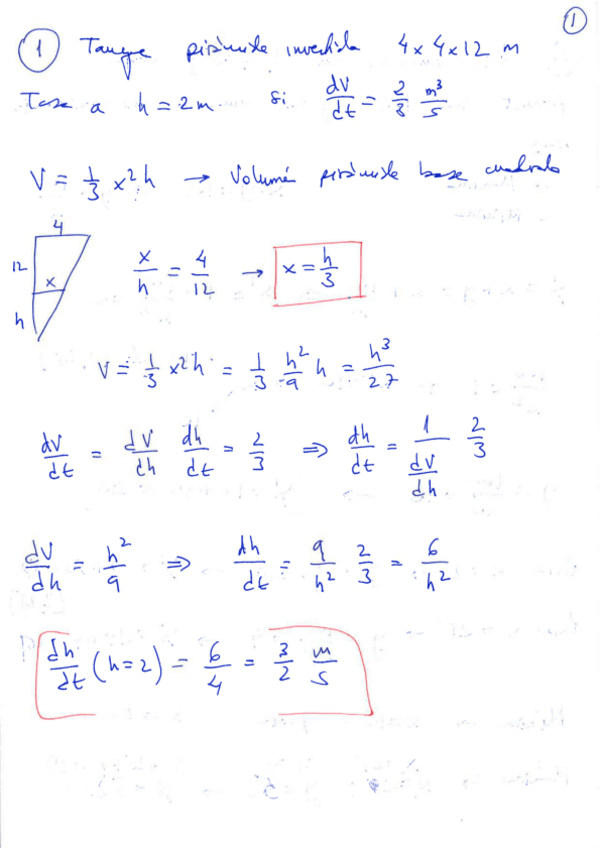 1
1 Tanque pirámide invertida 4x4x12 m
Tasa a h = 2m. si dV/dt = 2/3 m³/s
V = 1/3 x²h → Volumen pirámide base cuadrada
4
12
x
h
x/h = 4/12 → x = h/3
V = 1/3 x²h = 1/3 h²/9 h = h³/27
dV/dt = dV/dh dh/dt = 2/3 ⇒ dh/dt = 1/(dV/dh) 2/3
dV/dh = h²/9 ⇒ dh/dt = 9/h² 2/3 = 6/h²
dh/dt (h=2) = 6/4 = 3/2 m/s